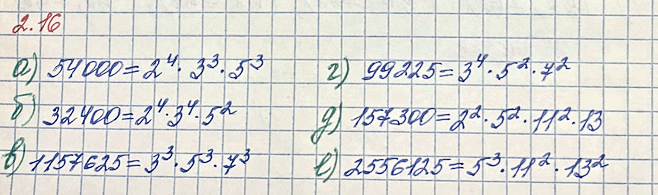 2.16
а) 54000 = 2⁴ · 3³ · 5³
б) 32400 = 2⁴ · 3⁴ · 5²
в) 1157625 = 3³ · 5³ · 7³
г) 99225 = 3⁴ · 5² · 7²
д) 157300 = 2² · 5² · 11² · 13
е) 2556125 = 5³ · 11² · 13²